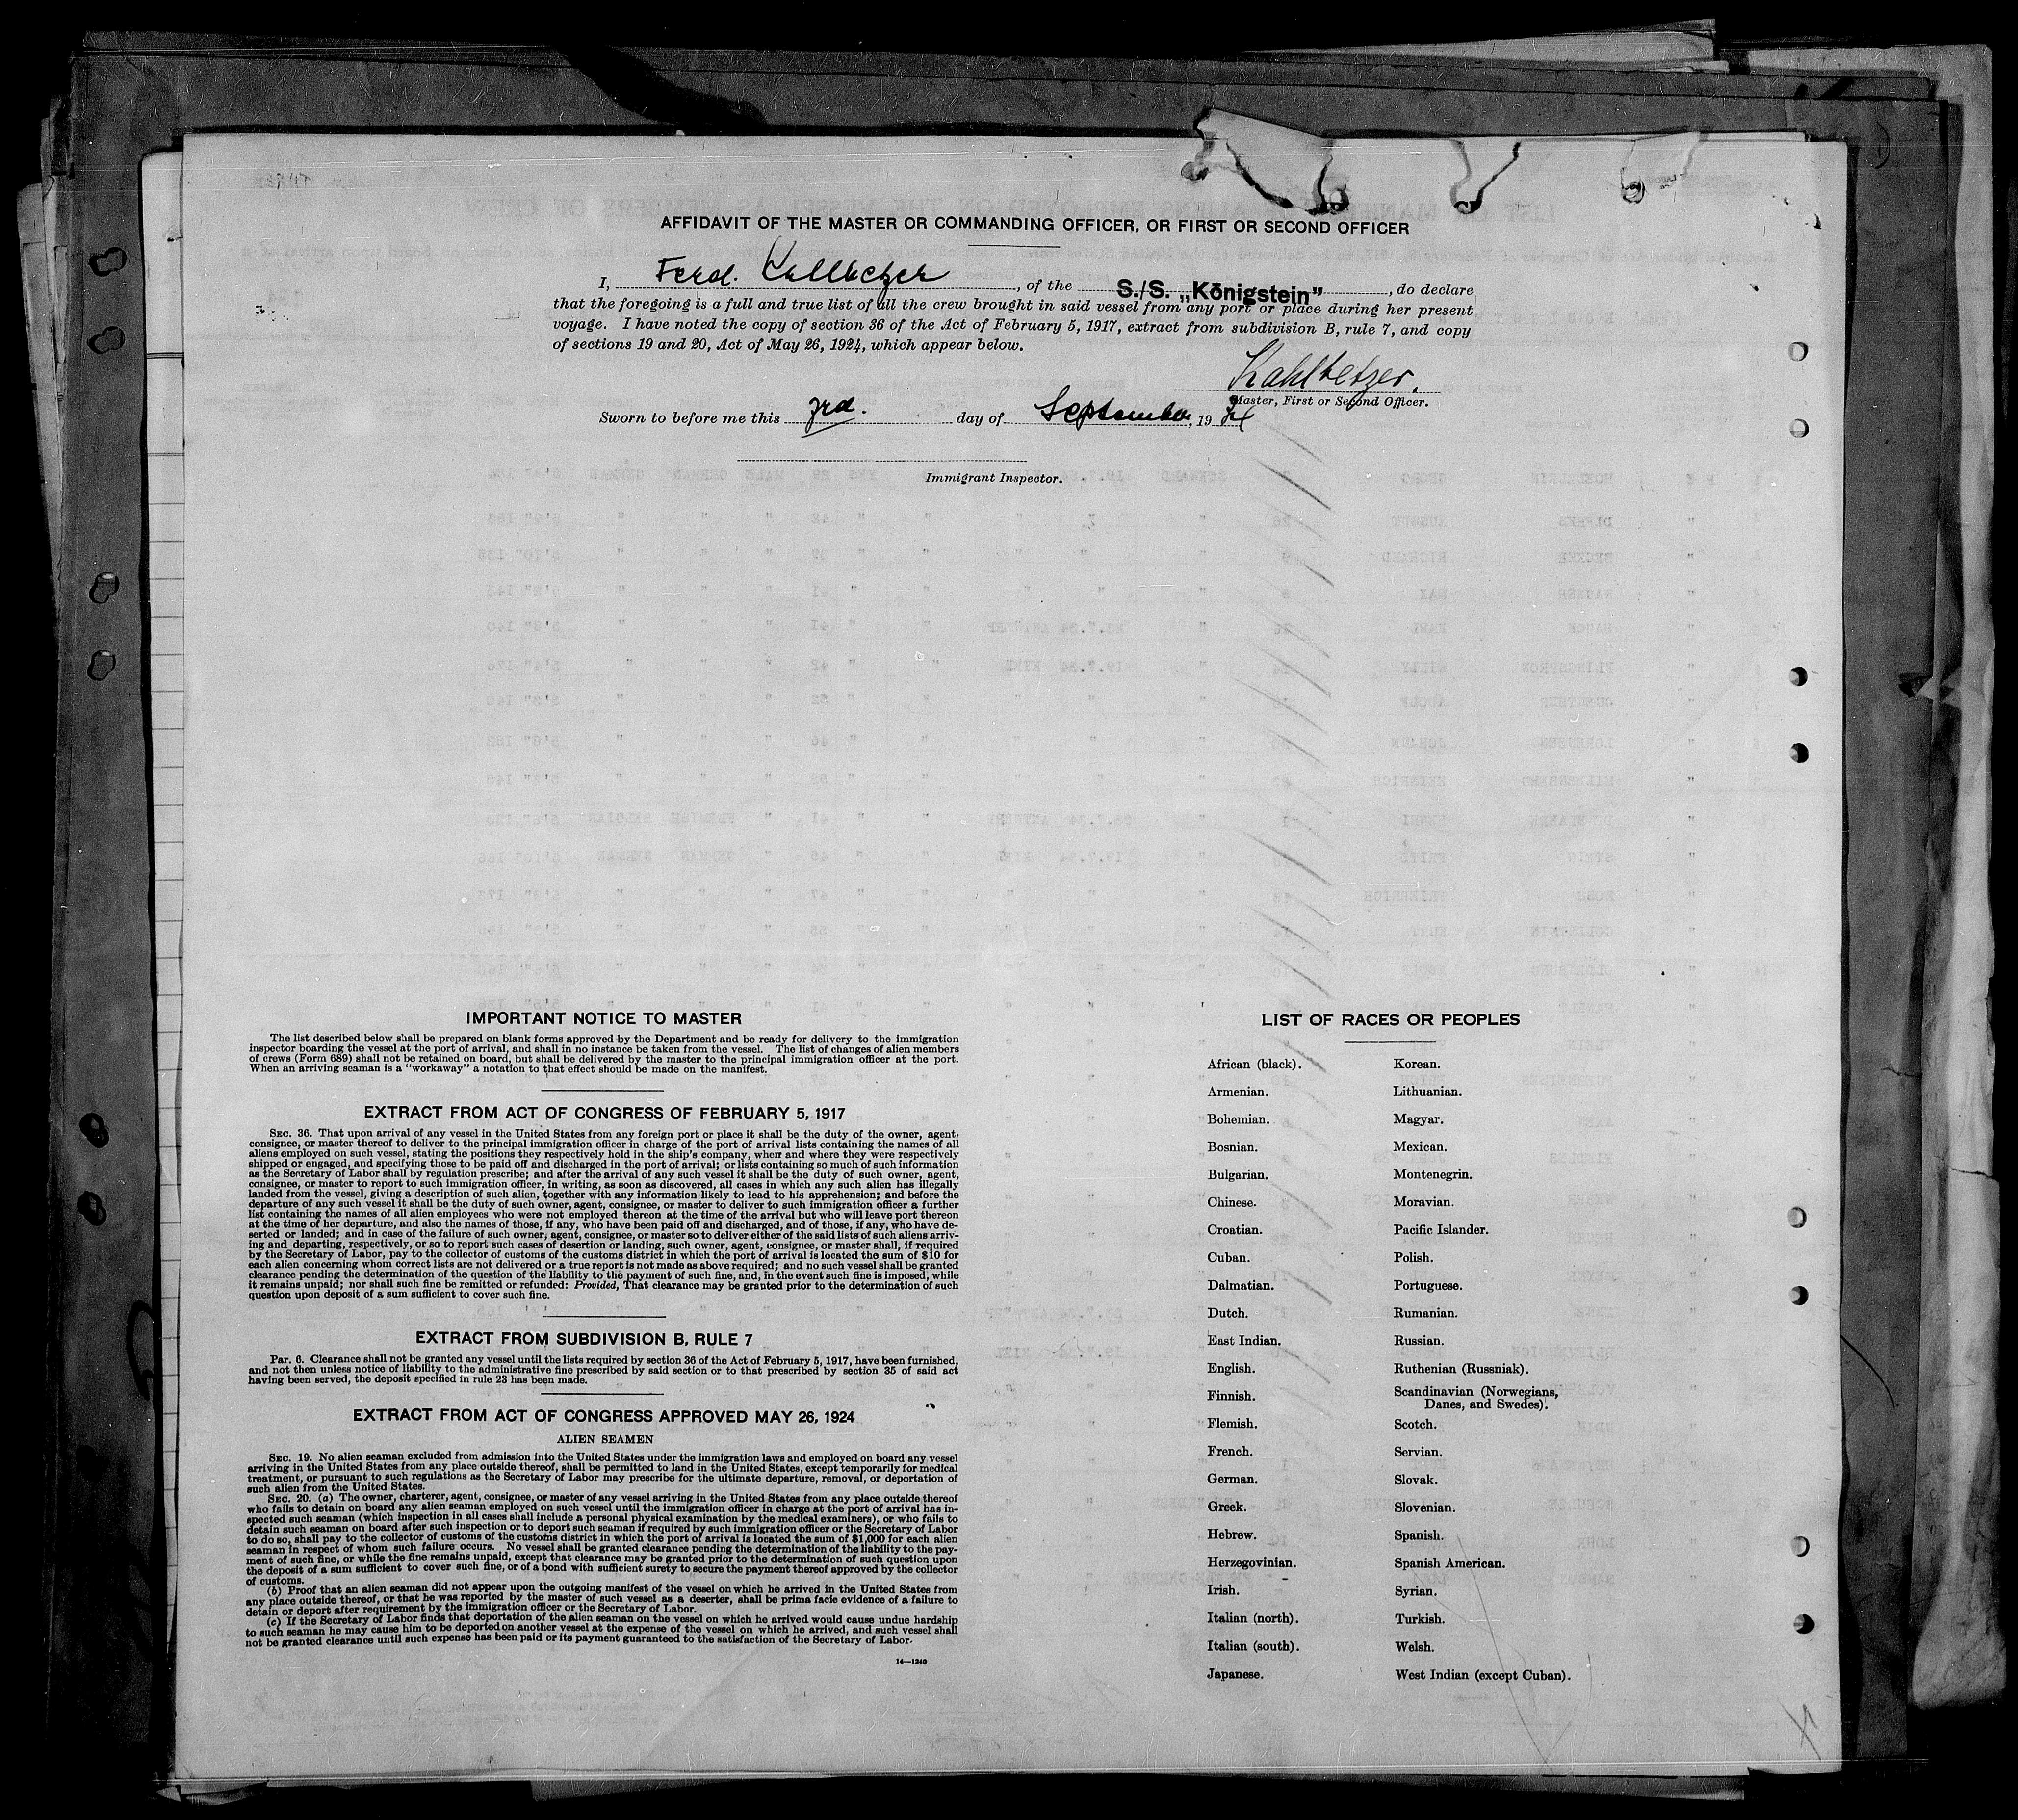 AFFIDAVIT OF THE MASTER OR COMMANDING OFFICER, OR FIRST OR SECOND OFFICER
I, Ferd. Kallbetzer, of the S./S. „Königstein”, do declare
that the foregoing is a full and true list of all the crew brought in said vessel from any port or place during her present
voyage. I have noted the copy of section 36 of the Act of February 5, 1917, extract from subdivision B, rule 7, and copy
of sections 19 and 20, Act of May 26, 1924, which appear below.
Kahlbetzer.
Master, First or Second Officer.
Sworn to before me this 3rd. day of September, 1934
Immigrant Inspector.
IMPORTANT NOTICE TO MASTER
The list described below shall be prepared on blank forms approved by the Department and be ready for delivery to the immigration
inspector boarding the vessel at the port of arrival, and shall in no instance be taken from the vessel. The list of changes of alien members
of crews (Form 689) shall not be retained on board, but shall be delivered by the master to the principal immigration officer at the port.
When an arriving seaman is a "workaway" a notation to that effect should be made on the manifest.
EXTRACT FROM ACT OF CONGRESS OF FEBRUARY 5, 1917
SEC. 36. That upon arrival of any vessel in the United States from any foreign port or place it shall be the duty of the owner, agent,
consignee, or master thereof to deliver to the principal immigration officer in charge of the port of arrival lists containing the names of all
aliens employed on such vessel, stating the positions they respectively hold in the ship's company, when and where they were respectively
shipped or engaged, and specifying those to be paid off and discharged in the port of arrival; or lists containing so much of such information
as the Secretary of Labor shall by regulation prescribe; and after the arrival of any such vessel it shall be the duty of such owner, agent,
consignee, or master to report to such immigration officer, in writing, as soon as discovered, all cases in which any such alien has illegally
landed from the vessel, giving a description of such alien, together with any information likely to lead to his apprehension; and before the
departure of any such vessel it shall be the duty of such owner, agent, consignee, or master to deliver to such immigration officer a further
list containing the names of all alien employees who were not employed thereon at the time of the arrival but who will leave port thereon
at the time of her departure, and also the names of those, if any, who have been paid off and discharged, and of those, if any, who have de-
serted or landed; and in case of the failure of such owner, agent, consignee, or master so to deliver either of the said lists of such aliens arriv-
ing and departing, respectively, or so to report such cases of desertion or landing, such owner, agent, consignee, or master shall, if required
by the Secretary of Labor, pay to the collector of customs of the customs district in which the port of arrival is located the sum of $10 for
each alien concerning whom correct lists are not delivered or a true report is not made as above required; and no such vessel shall be granted
clearance pending the determination of the question of the liability to the payment of such fine, and, in the event such fine is imposed, while
it remains unpaid; nor shall such fine be remitted or refunded: Provided, That clearance may be granted prior to the determination of such
question upon deposit of a sum sufficient to cover such fine.
EXTRACT FROM SUBDIVISION B, RULE 7
Par. 6. Clearance shall not be granted any vessel until the lists required by section 36 of the Act of February 5, 1917, have been furnished,
and not then unless notice of liability to the administrative fine prescribed by said section or to that prescribed by section 35 of said act
having been served, the deposit specified in rule 23 has been made.
EXTRACT FROM ACT OF CONGRESS APPROVED MAY 26, 1924
ALIEN SEAMEN
SEC. 19. No alien seaman excluded from admission into the United States under the immigration laws and employed on board any vessel
arriving in the United States from any place outside thereof, shall be permitted to land in the United States, except temporarily for medical
treatment, or pursuant to such regulations as the Secretary of Labor may prescribe for the ultimate departure, removal, or deportation of
such alien from the United States.
SEC. 20. (a) The owner, charterer, agent, consignee, or master of any vessel arriving in the United States from any place outside thereof
who fails to detain on board any alien seaman employed on such vessel until the immigration officer in charge at the port of arrival has in-
spected such seaman (which inspection in all cases shall include a personal physical examination by the medical examiners), or who fails to
detain such seaman on board after such inspection or to deport such seaman if required by such immigration officer or the Secretary of Labor
to do so, shall pay to the collector of customs of the customs district in which the port of arrival is located the sum of $1,000 for each alien
seaman in respect of whom such failure occurs. No vessel shall be granted clearance pending the determination of the liability to the pay-
ment of such fine, or while the fine remains unpaid, except that clearance may be granted prior to the determination of such question upon
the deposit of a sum sufficient to cover such fine, or of a bond with sufficient surety to secure the payment thereof approved by the collector
of customs.
(b) Proof that an alien seaman did not appear upon the outgoing manifest of the vessel on which he arrived in the United States from
any place outside thereof, or that he was reported by the master of such vessel as a deserter, shall be prima facie evidence of a failure to
detain or deport after requirement by the immigration officer or the Secretary of Labor.
(c) If the Secretary of Labor finds that deportation of the alien seaman on the vessel on which he arrived would cause undue hardship
to such seaman he may cause him to be deported on another vessel at the expense of the vessel on which he arrived, and such vessel shall
not be granted clearance until such expense has been paid or its payment guaranteed to the satisfaction of the Secretary of Labor.
14—1240
LIST OF RACES OR PEOPLES
African (black).
Armenian.
Bohemian.
Bosnian.
Bulgarian.
Chinese.
Croatian.
Cuban.
Dalmatian.
Dutch.
East Indian.
English.
Finnish.
Flemish.
French.
German.
Greek.
Hebrew.
Herzegovinian.
Irish.
Italian (north).
Italian (south).
Japanese.
Korean.
Lithuanian.
Magyar.
Mexican.
Montenegrin.
Moravian.
Pacific Islander.
Polish.
Portuguese.
Rumanian.
Russian.
Ruthenian (Russniak).
Scandinavian (Norwegians,
Danes, and Swedes).
Scotch.
Servian.
Slovak.
Slovenian.
Spanish.
Spanish American.
Syrian.
Turkish.
Welsh.
West Indian (except Cuban).